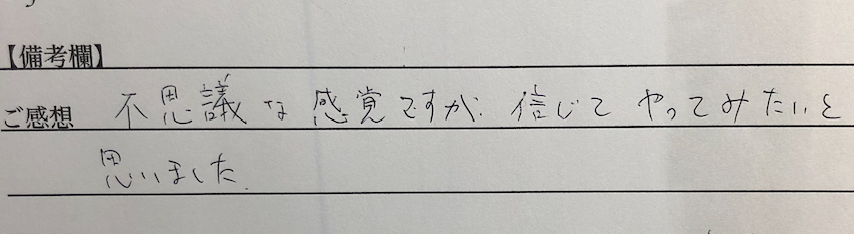 【備考欄】
ご感想 不思議な感覚ですが、信じてやってみたいと
思いました.